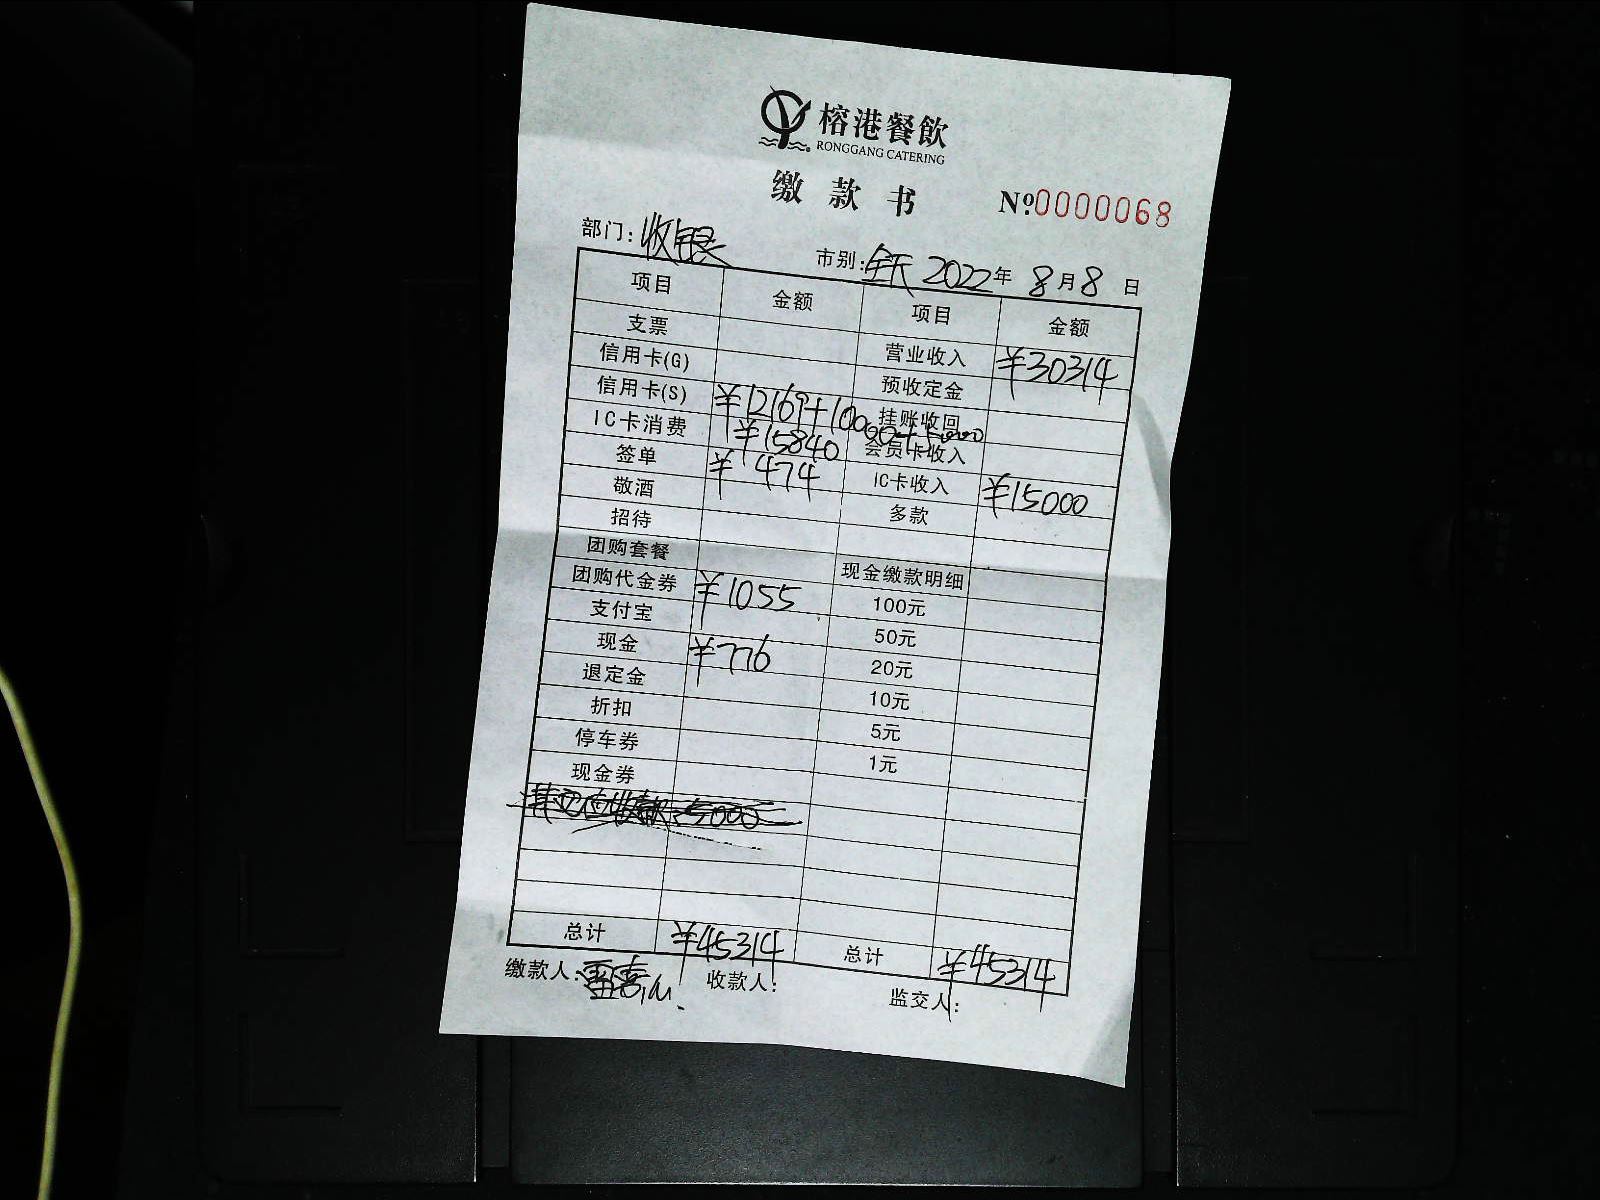 榕港餐飲
RONGGANG CATERING
缴款书 №0000068
部门：收银 市别：全天 2022年 8月8日
项目 金额 项目 金额
支票 营业收入 ¥30314
信用卡(G) 预收定金
信用卡(S) ¥12169+10000+5000 挂账收回
IC卡消费 ¥15840 会员卡收入
签单 ¥474 IC卡收入 ¥15000
敬酒 多款
招待
团购套餐 现金缴款明细
团购代金券 ¥1055 100元
支付宝 50元
现金 ¥776 20元
退定金 10元
折扣 5元
停车券 1元
现金券
5000
总计 ¥45314 总计 ¥45314
缴款人： 收款人： 监交人：